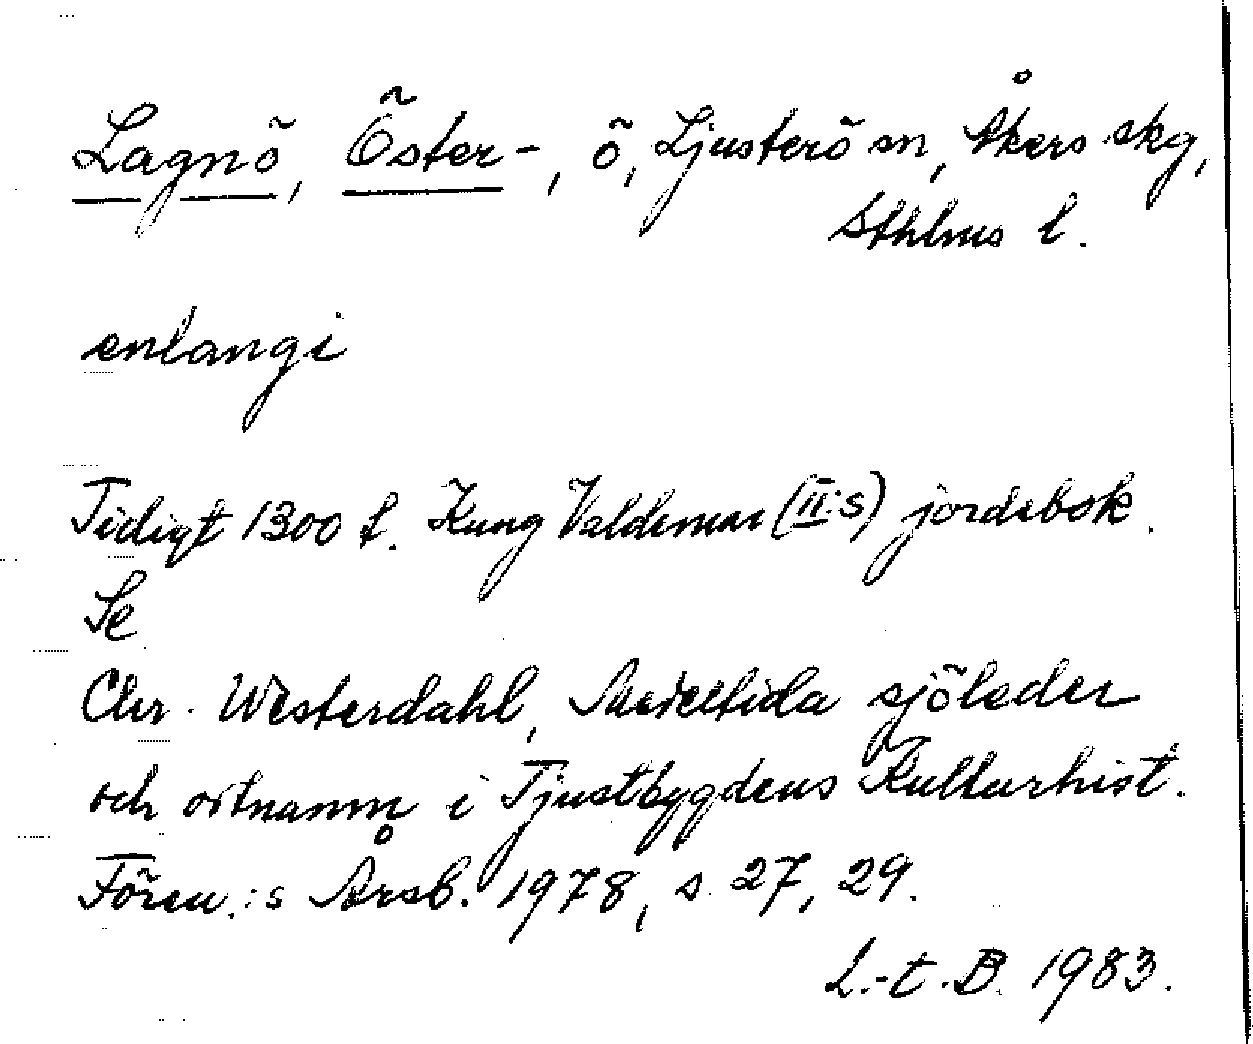 Lagnö, Öster-, ö, Ljusterö sn, Åkers skg,
Sthlms l.
enlangi
Tidigt 1300 t. Kung Valdemar (II:s) jordebok.
Se
Chr. Westerdahl, Medeltida sjöleder
och ortnamn i Tjustbygdens Kulturhist.
Fören.:s Årsb. 1978, s. 27, 29.
L.-t. B. 1983.